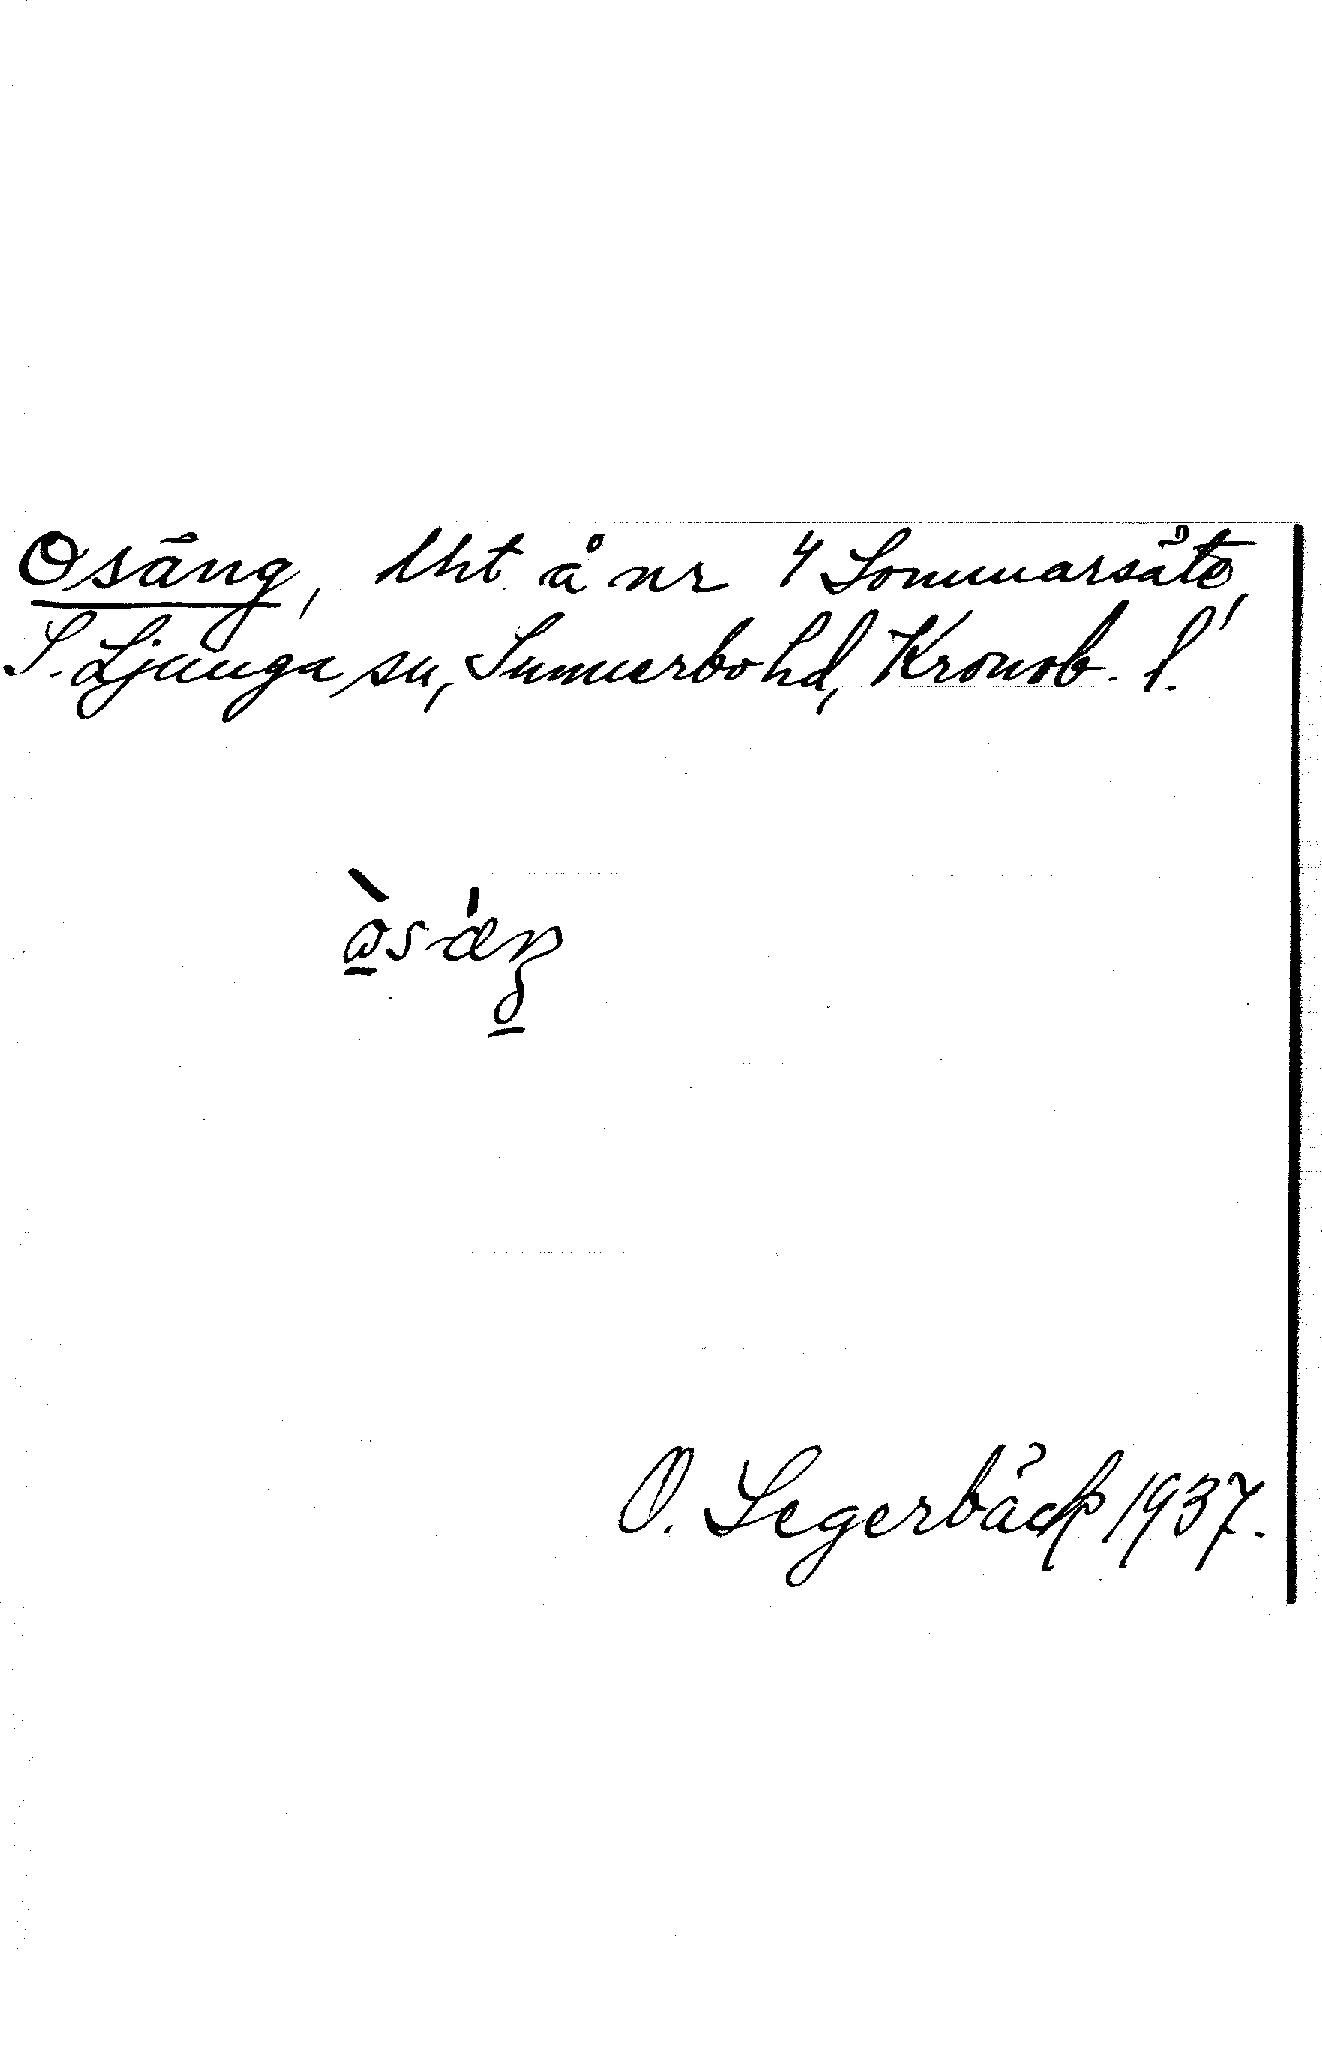 Osäng, lht å nr 4 Sommarsäte,
S. Ljunga sn, Sunnerbo hd, Kronob. l.
O. Segerbäck 1937.